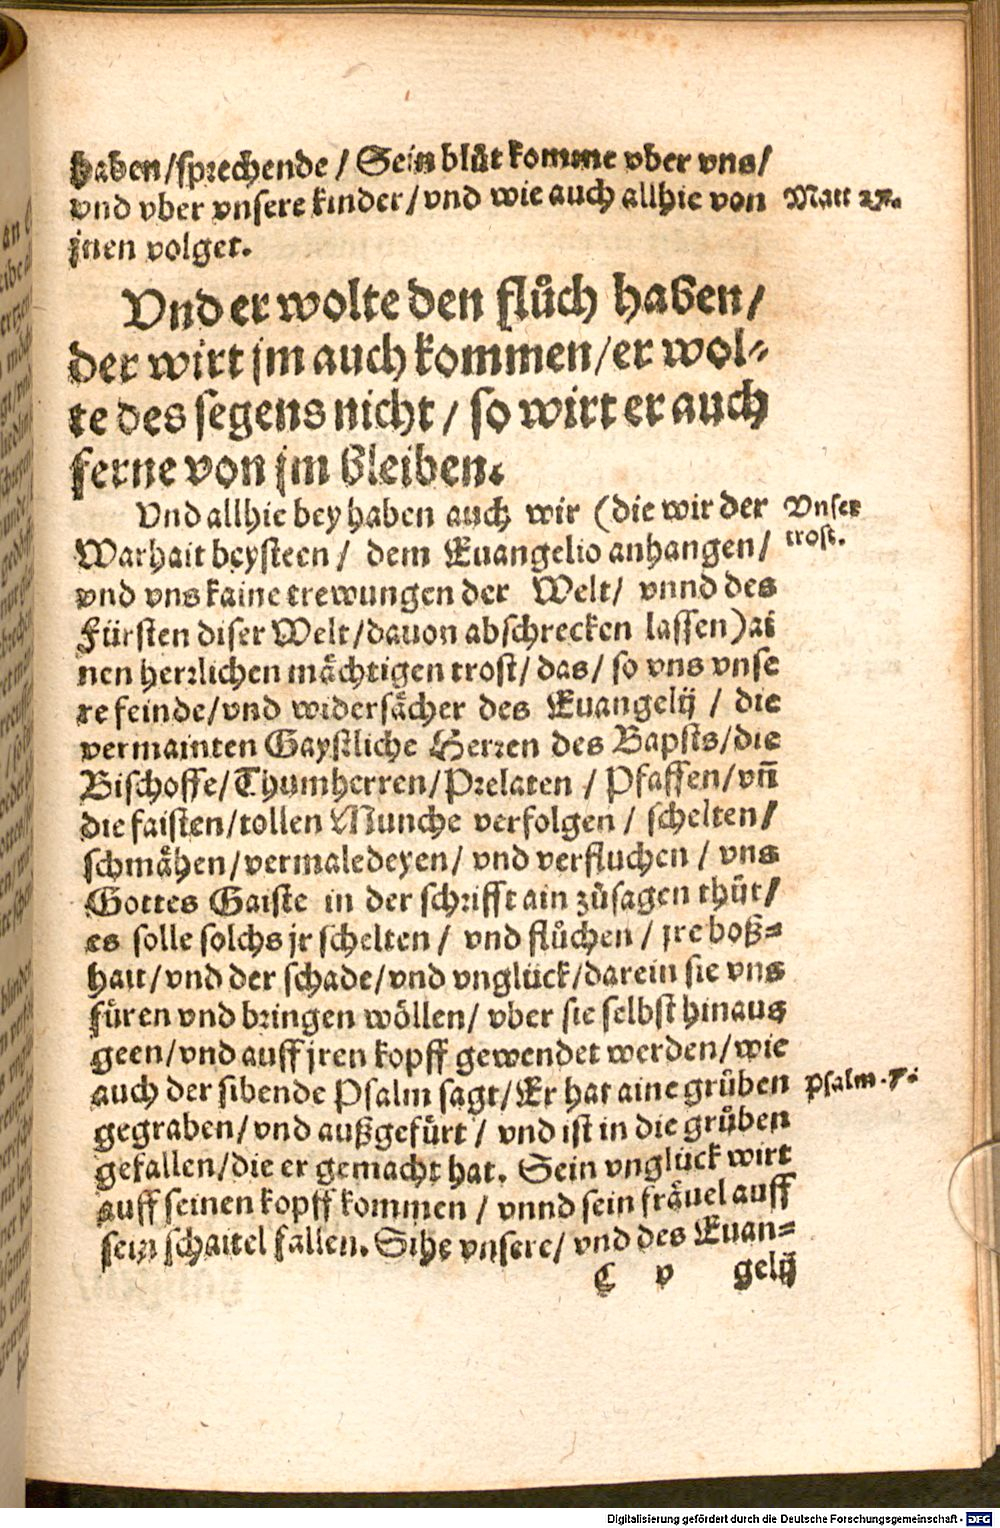 haben/sprechende / Sein blůt komme vber vns/
vnd vber vnsere kinder/vnd wie auch allhie von
jnen volget.
Matt 27.
Vnd er wolte den flůch haben/
der wirt jm auch kommen/er wol-
te des segens nicht / so wirt er auch
ferne von jm bleiben.
Vnd allhie bey haben auch wir (die wir der
Warhait beysteen / dem Euangelio anhangen/
vnd vns kaine trewungen der Welt/ vnnd des
Fürsten diser Welt/dauon abschrecken lassen)ai
nen herrlichen mächtigen trost/das/ so vns vnse
re feinde/vnd widersächer des Euangelij / die
vermainten Gaystliche Herren des Bapsts/die
Bischoffe/Thumherren/Prelaten / Pfaffen/vñ
die faisten/tollen Munche verfolgen / schelten/
schmähen/vermaledeyen/ vnd verfluchen / vns
Gottes Gaiste in der schrifft ain zůsagen thůt/
es solle solchs jr schelten / vnd flůchen / jre boß-
hait/vnd der schade/vnd vnglück/darein sie vns
füren vnd bringen wöllen/ vber sie selbst hinaus
geen/vnd auff jren kopff gewendet werden/wie
auch der sibende Psalm sagt/Er hat aine grůben
gegraben/vnd außgefürt / vnd ist in die grůben
gefallen/die er gemacht hat. Sein vnglück wirt
auff seinen kopff kommen / vnnd sein fräuel auff
sein schaitel fallen. Sihe vnsere/ vnd des Euan-
Vnser
trost.
Psalm .7.
C v gelij
Digitalisierung gefördert durch die Deutsche Forschungsgemeinschaft - DFG